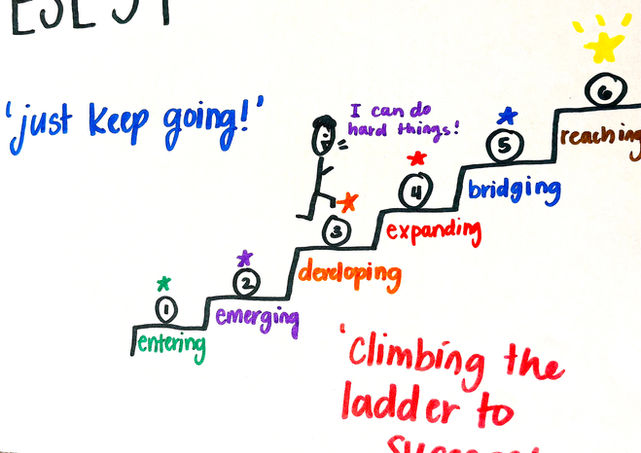 'just keep going!'
I can do
hard things!
6
reaching
5
bridging
4
expanding
3
developing
2
emerging
1
entering
'Climbing the
ladder to